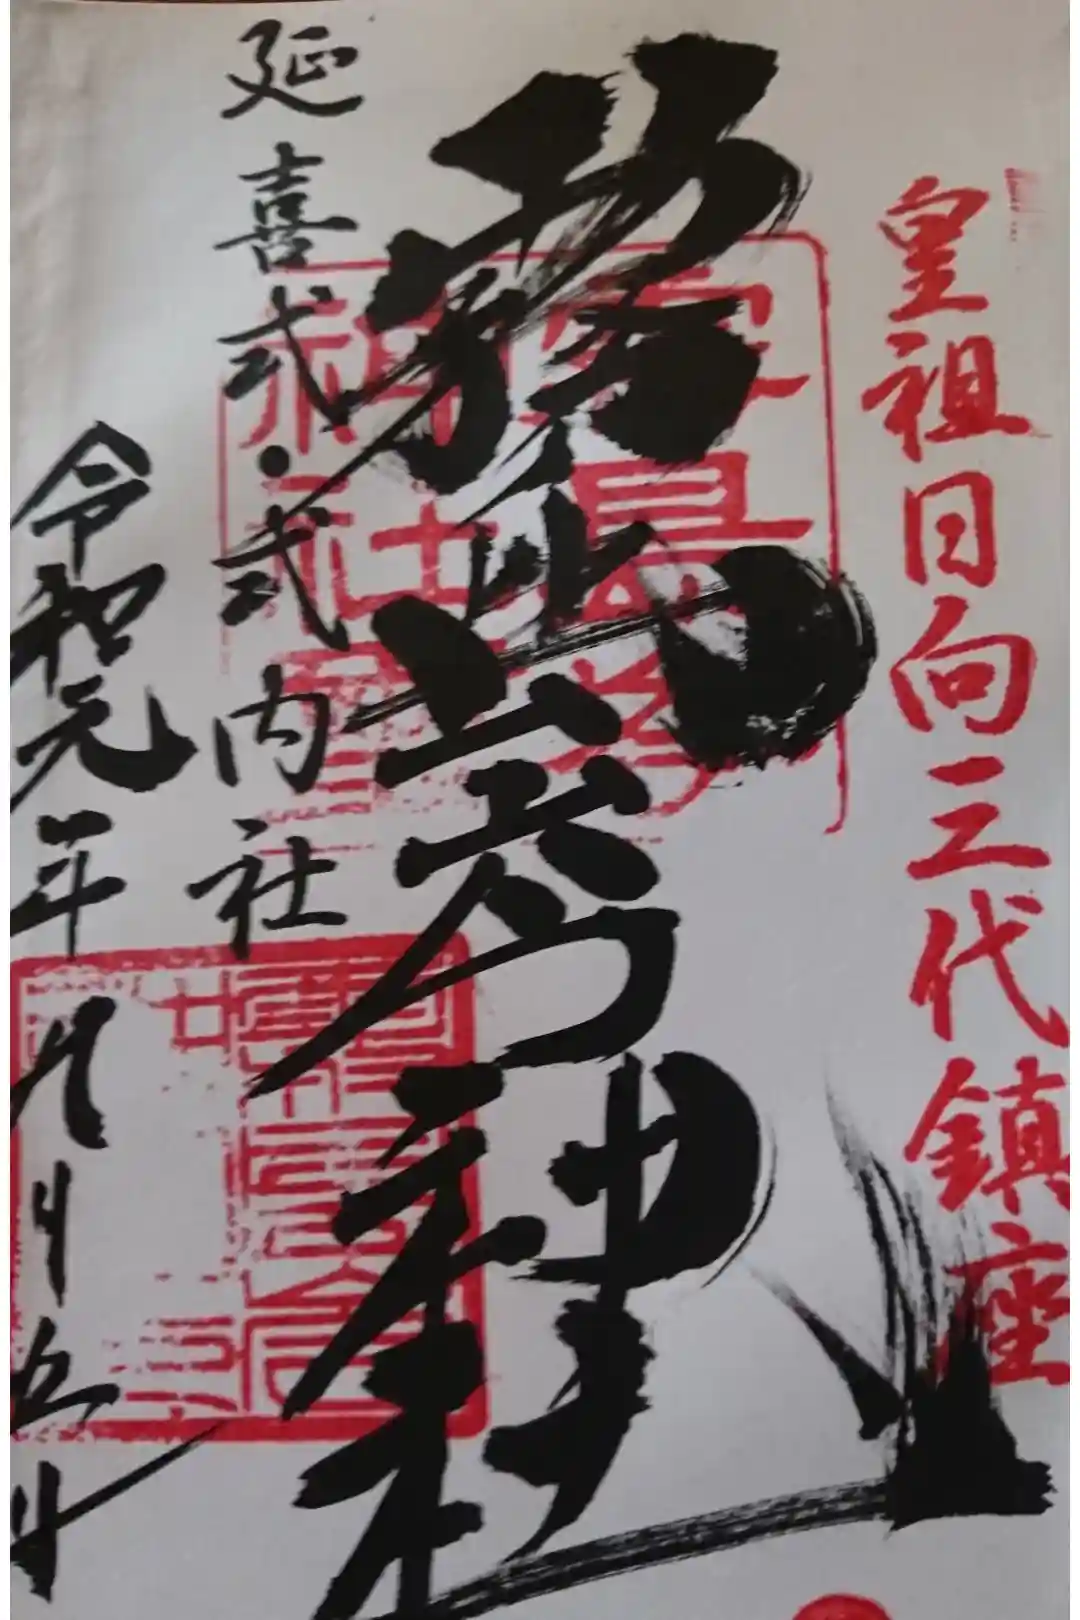 皇祖日向三代鎮座
霧島岑神社
延喜式・式内社
令和元年九月五日